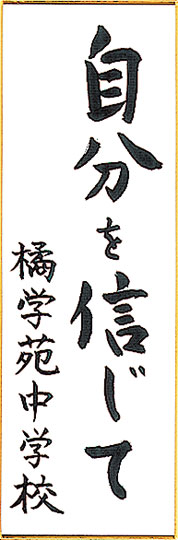 自分を信じて
橘学苑中学校